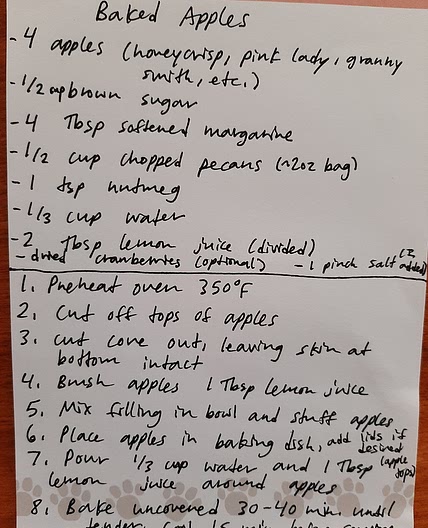 Baked Apples
- 4 apples (honeycrisp, pink lady, granny
smith, etc.)
- 1/2 cup brown sugar
- 4 Tbsp softened margarine
- 1/2 cup chopped pecans (~2oz bag)
- 1 tsp nutmeg
- 1/3 cup water
- 2 Tbsp lemon juice (divided)
- dried cranberries (optional) - 1 pinch salt added)
1. Preheat oven 350°F
2. Cut off tops of apples
3. cut core out, leaving skin at
bottom intact
4. Brush apples 1 Tbsp lemon juice
5. Mix filling in bowl and stuff apples
6. Place apples in baking dish, add lids if desired
7. Pour 1/3 cup water and 1 Tbsp (apple tops)
lemon juice around apples
8. Bake uncovered 30-40 min. until